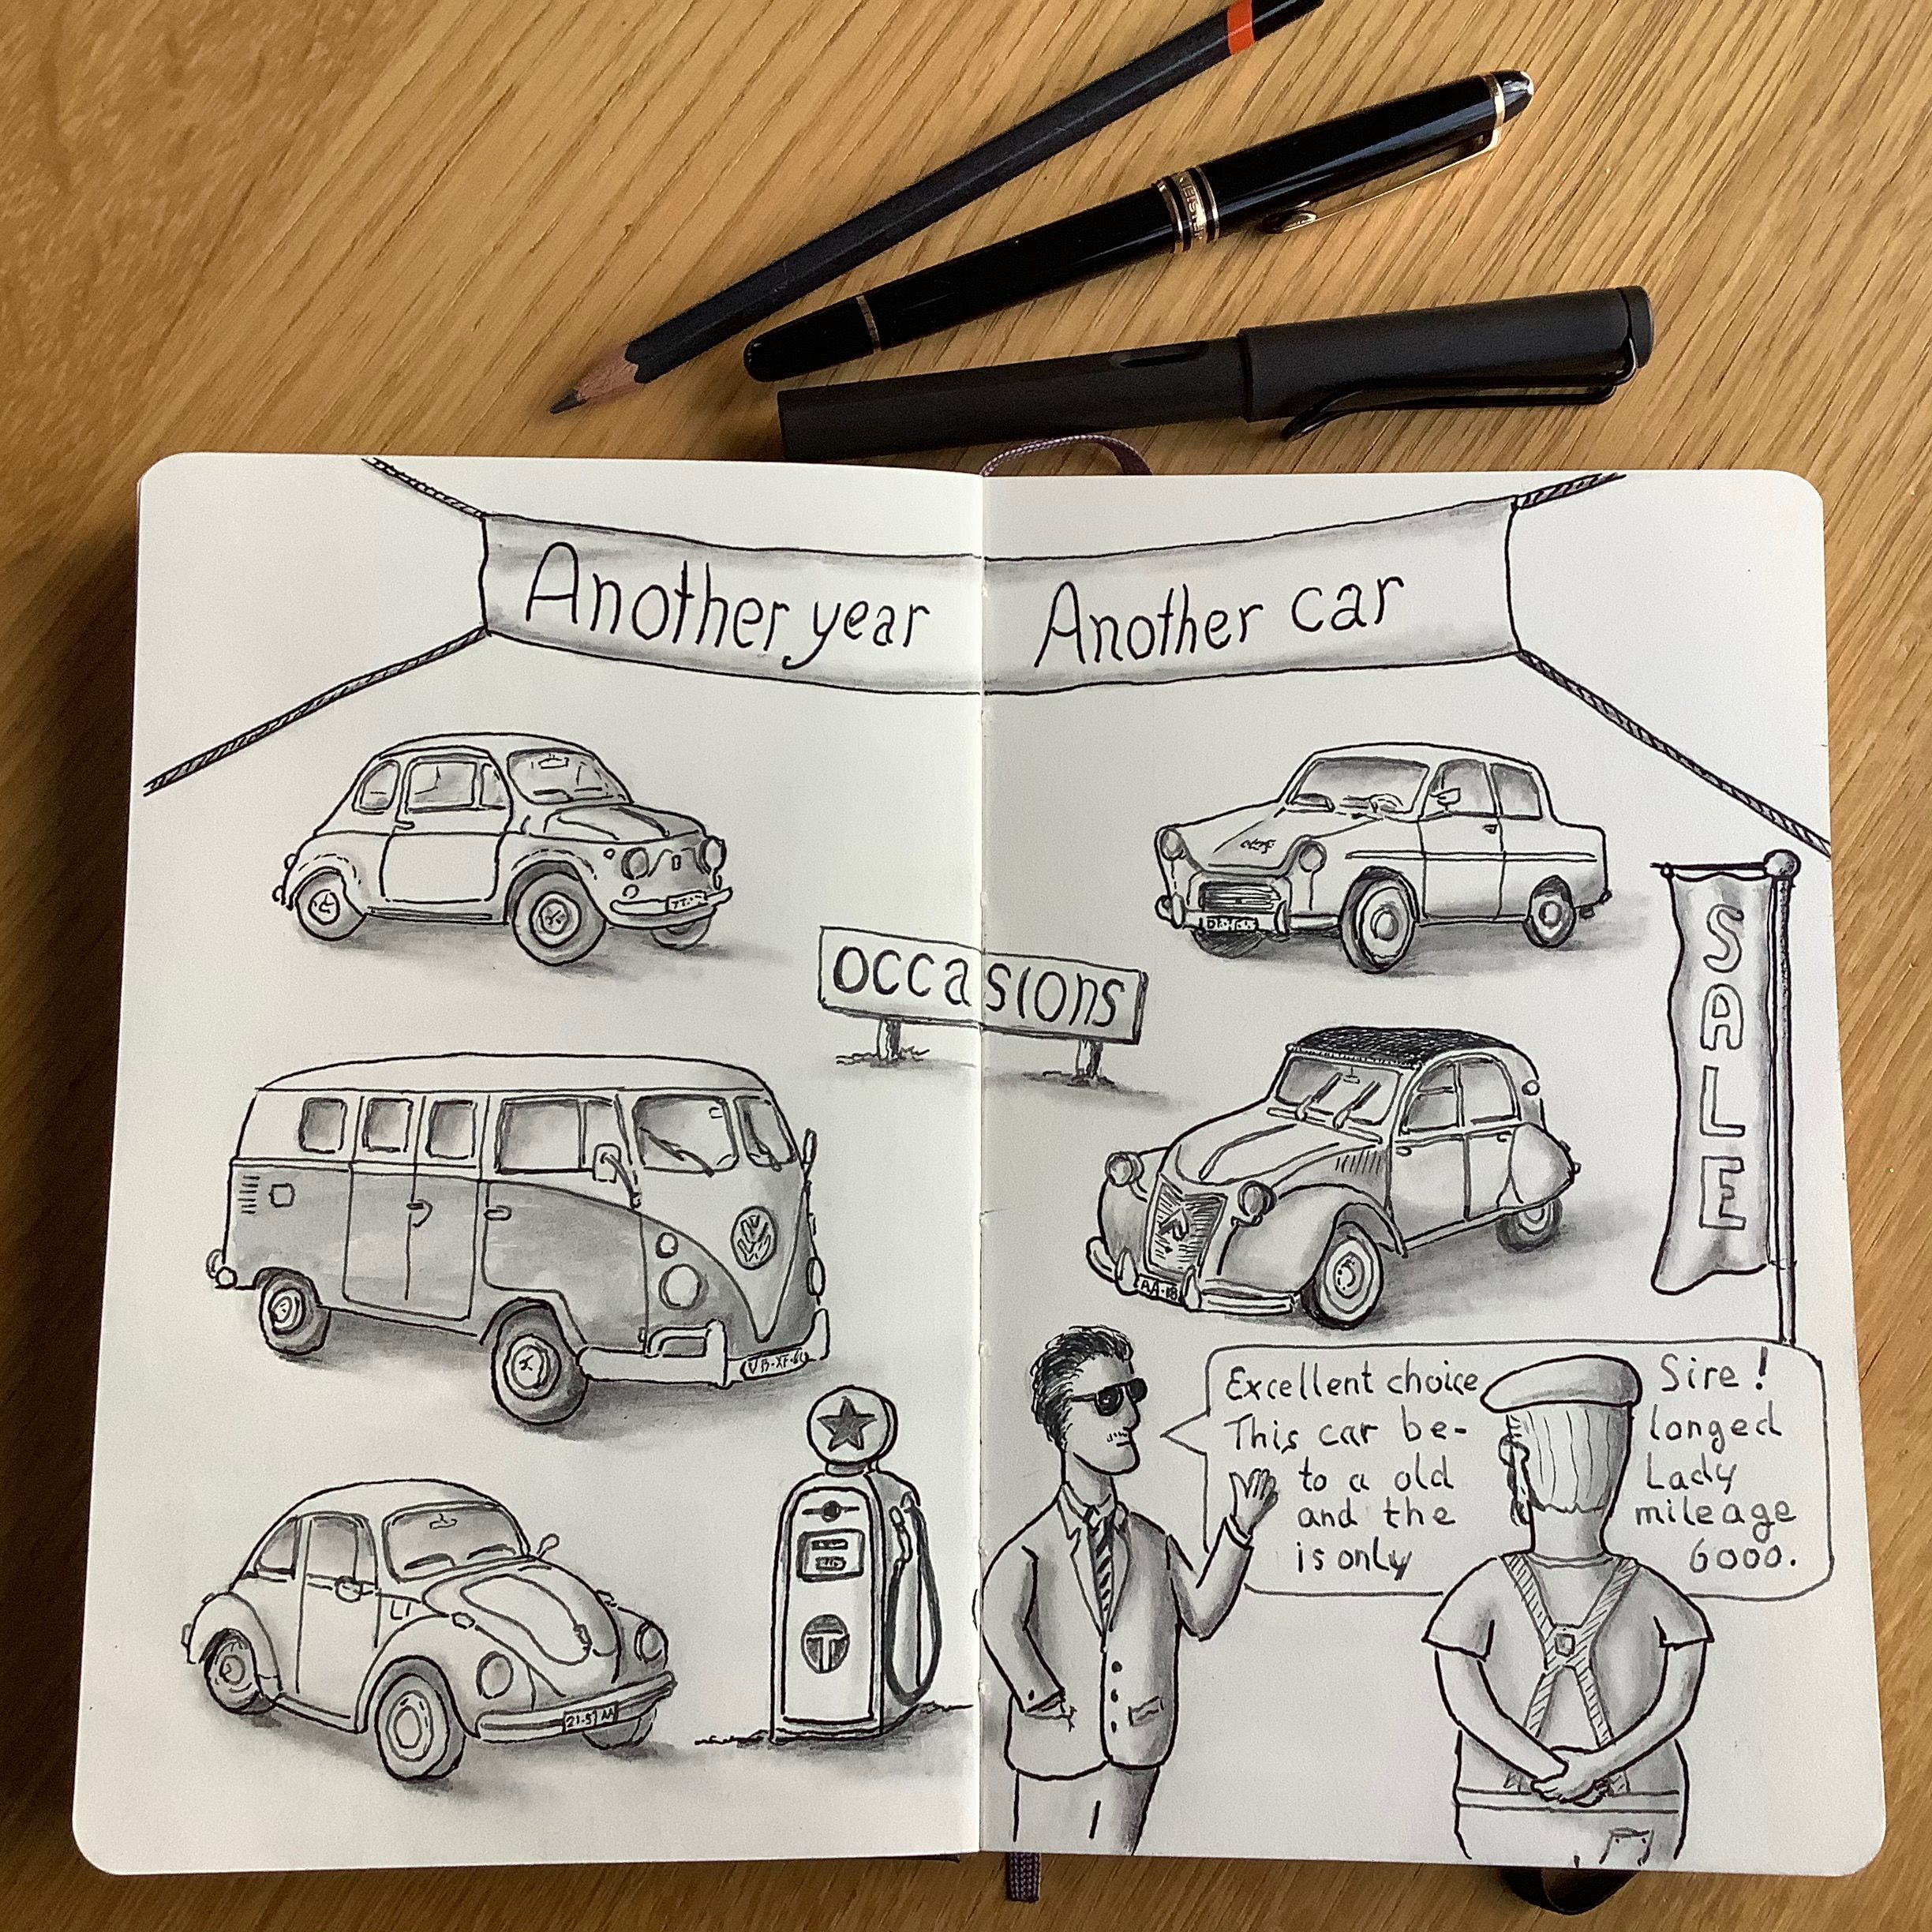 Another year Another car
occasions
SALE
VW
21-51 AA
AA-18
T
Excellent choice Sire!
This car be- longed
to a old Lady
and the mileage
is only 6000.